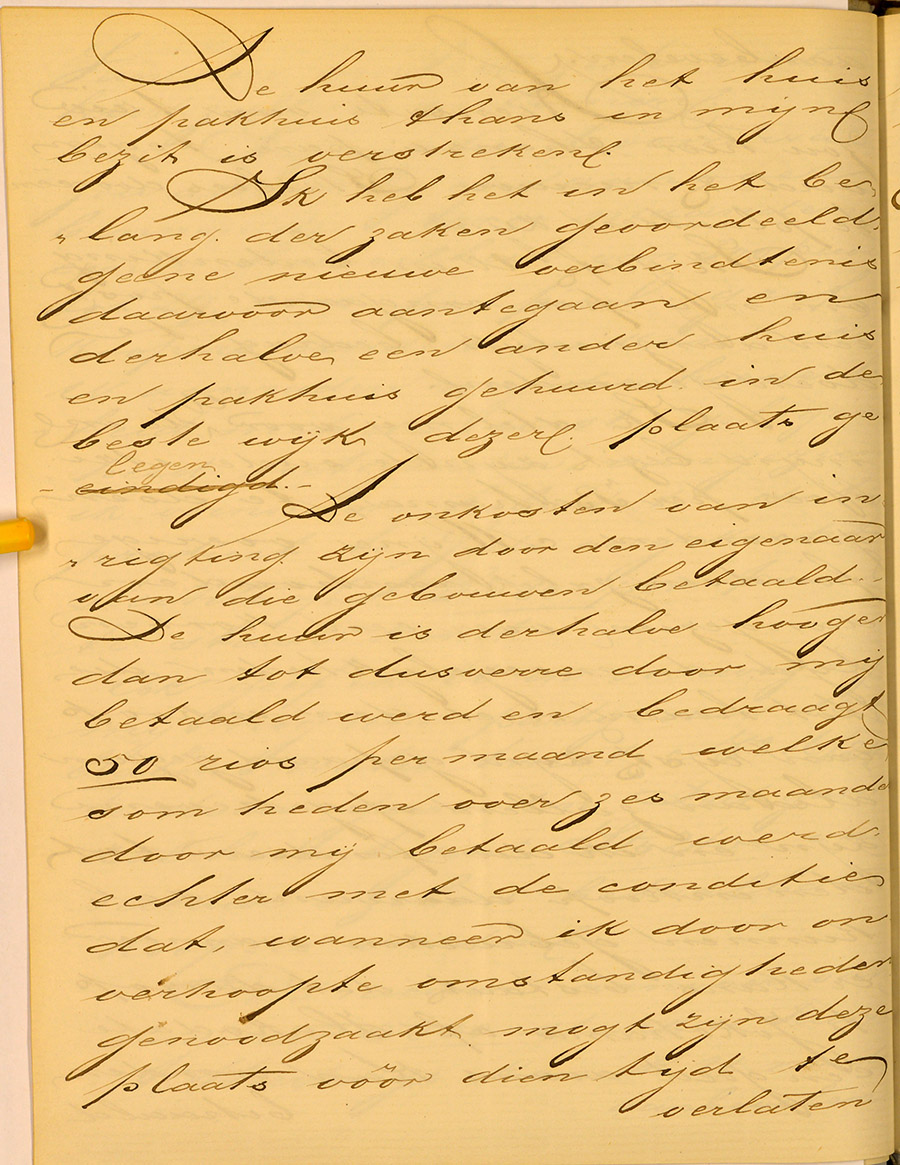 De huur van het huis
en pakhuis thans in mijn
bezit is verstreken.
Ik heb het in het be
„lang der zaken geoordeeld
geene nieuwe verbindtenis
daarvoor aantegaan en
derhalve een ander huis
en pakhuis gehuurd in de
beste wijk dezer plaats ge
legen
eindigd. -
De onkosten van in
„rigting zijn door den eigenaar
van die gebouwen betaald. -
De huur is derhalve hooger
dan tot dusverre door mij
betaald werd en bedraagt
50 rios per maand welke
som heden over zes maande
door mij betaald werd
echter met de conditie
dat, wanneer ik door on
verhoopte omstandigheden
genoodzaakt mogt zijn deze
plaats vóór dien tijd te
verlaten